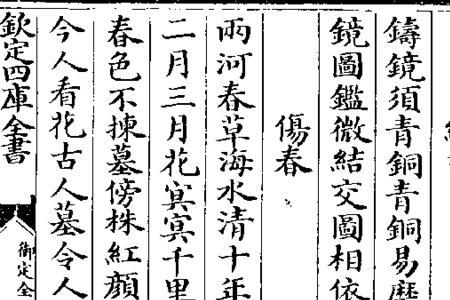 鑄鏡須青銅青銅易歷
鏡圖鑑微結交圖相依
傷春
兩河春草海水清十年
二月三月花冥冥千里
春色不揀墓傍株紅顔
今人看花古人墓令人
欽定四庫全書
御定全